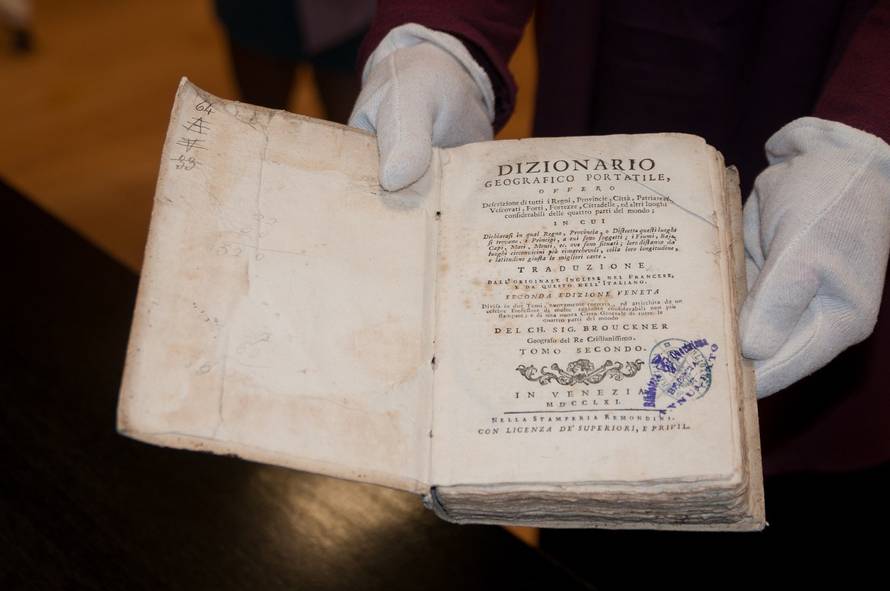 64
A
V
33
DIZIONARIO
GEOGRAFICO PORTATILE,
OVVERO
Descrizione di tutti i Regni, Provincie, Città, Patriarcati,
Vescovati, Forti, Fortezze, Cittadelle, ed altri luoghi
considerabili delle quattro parti del mondo;
IN CUI
Dichiarasi in qual Regno, Provincia, e Distretto questi luoghi
si trovano, i Principi, a cui sono soggetti; i Fiumi, Baje,
Capi, Mari, Monti, ec. ove sono situati; loro distanza da'
luoghi circonvicini più comprensibili, colla loro longitudine,
e latitudine giusta le migliori carte.
TRADUZIONE
DALL'ORIGINALE INGLESE NEL FRANCESE,
E DA QUESTO NELL'ITALIANO.
SECONDA EDIZIONE VENETA
Divisa in due Tomi, nuovamente corretta, ed arricchita da un
celebre Professore di molte aggiunte considerabili non più
stampate; e di una nuova Carta Generale di tutte le
quattro parti del mondo
DEL CH. SIG. BROUCKNER
Geografo del Re Cristianissimo.
TOMO SECONDO.
IN VENEZIA
MDCCLXI.
NELLA STAMPERIA REMONDINI.
CON LICENZA DE' SUPERIORI, E PRIVIL.